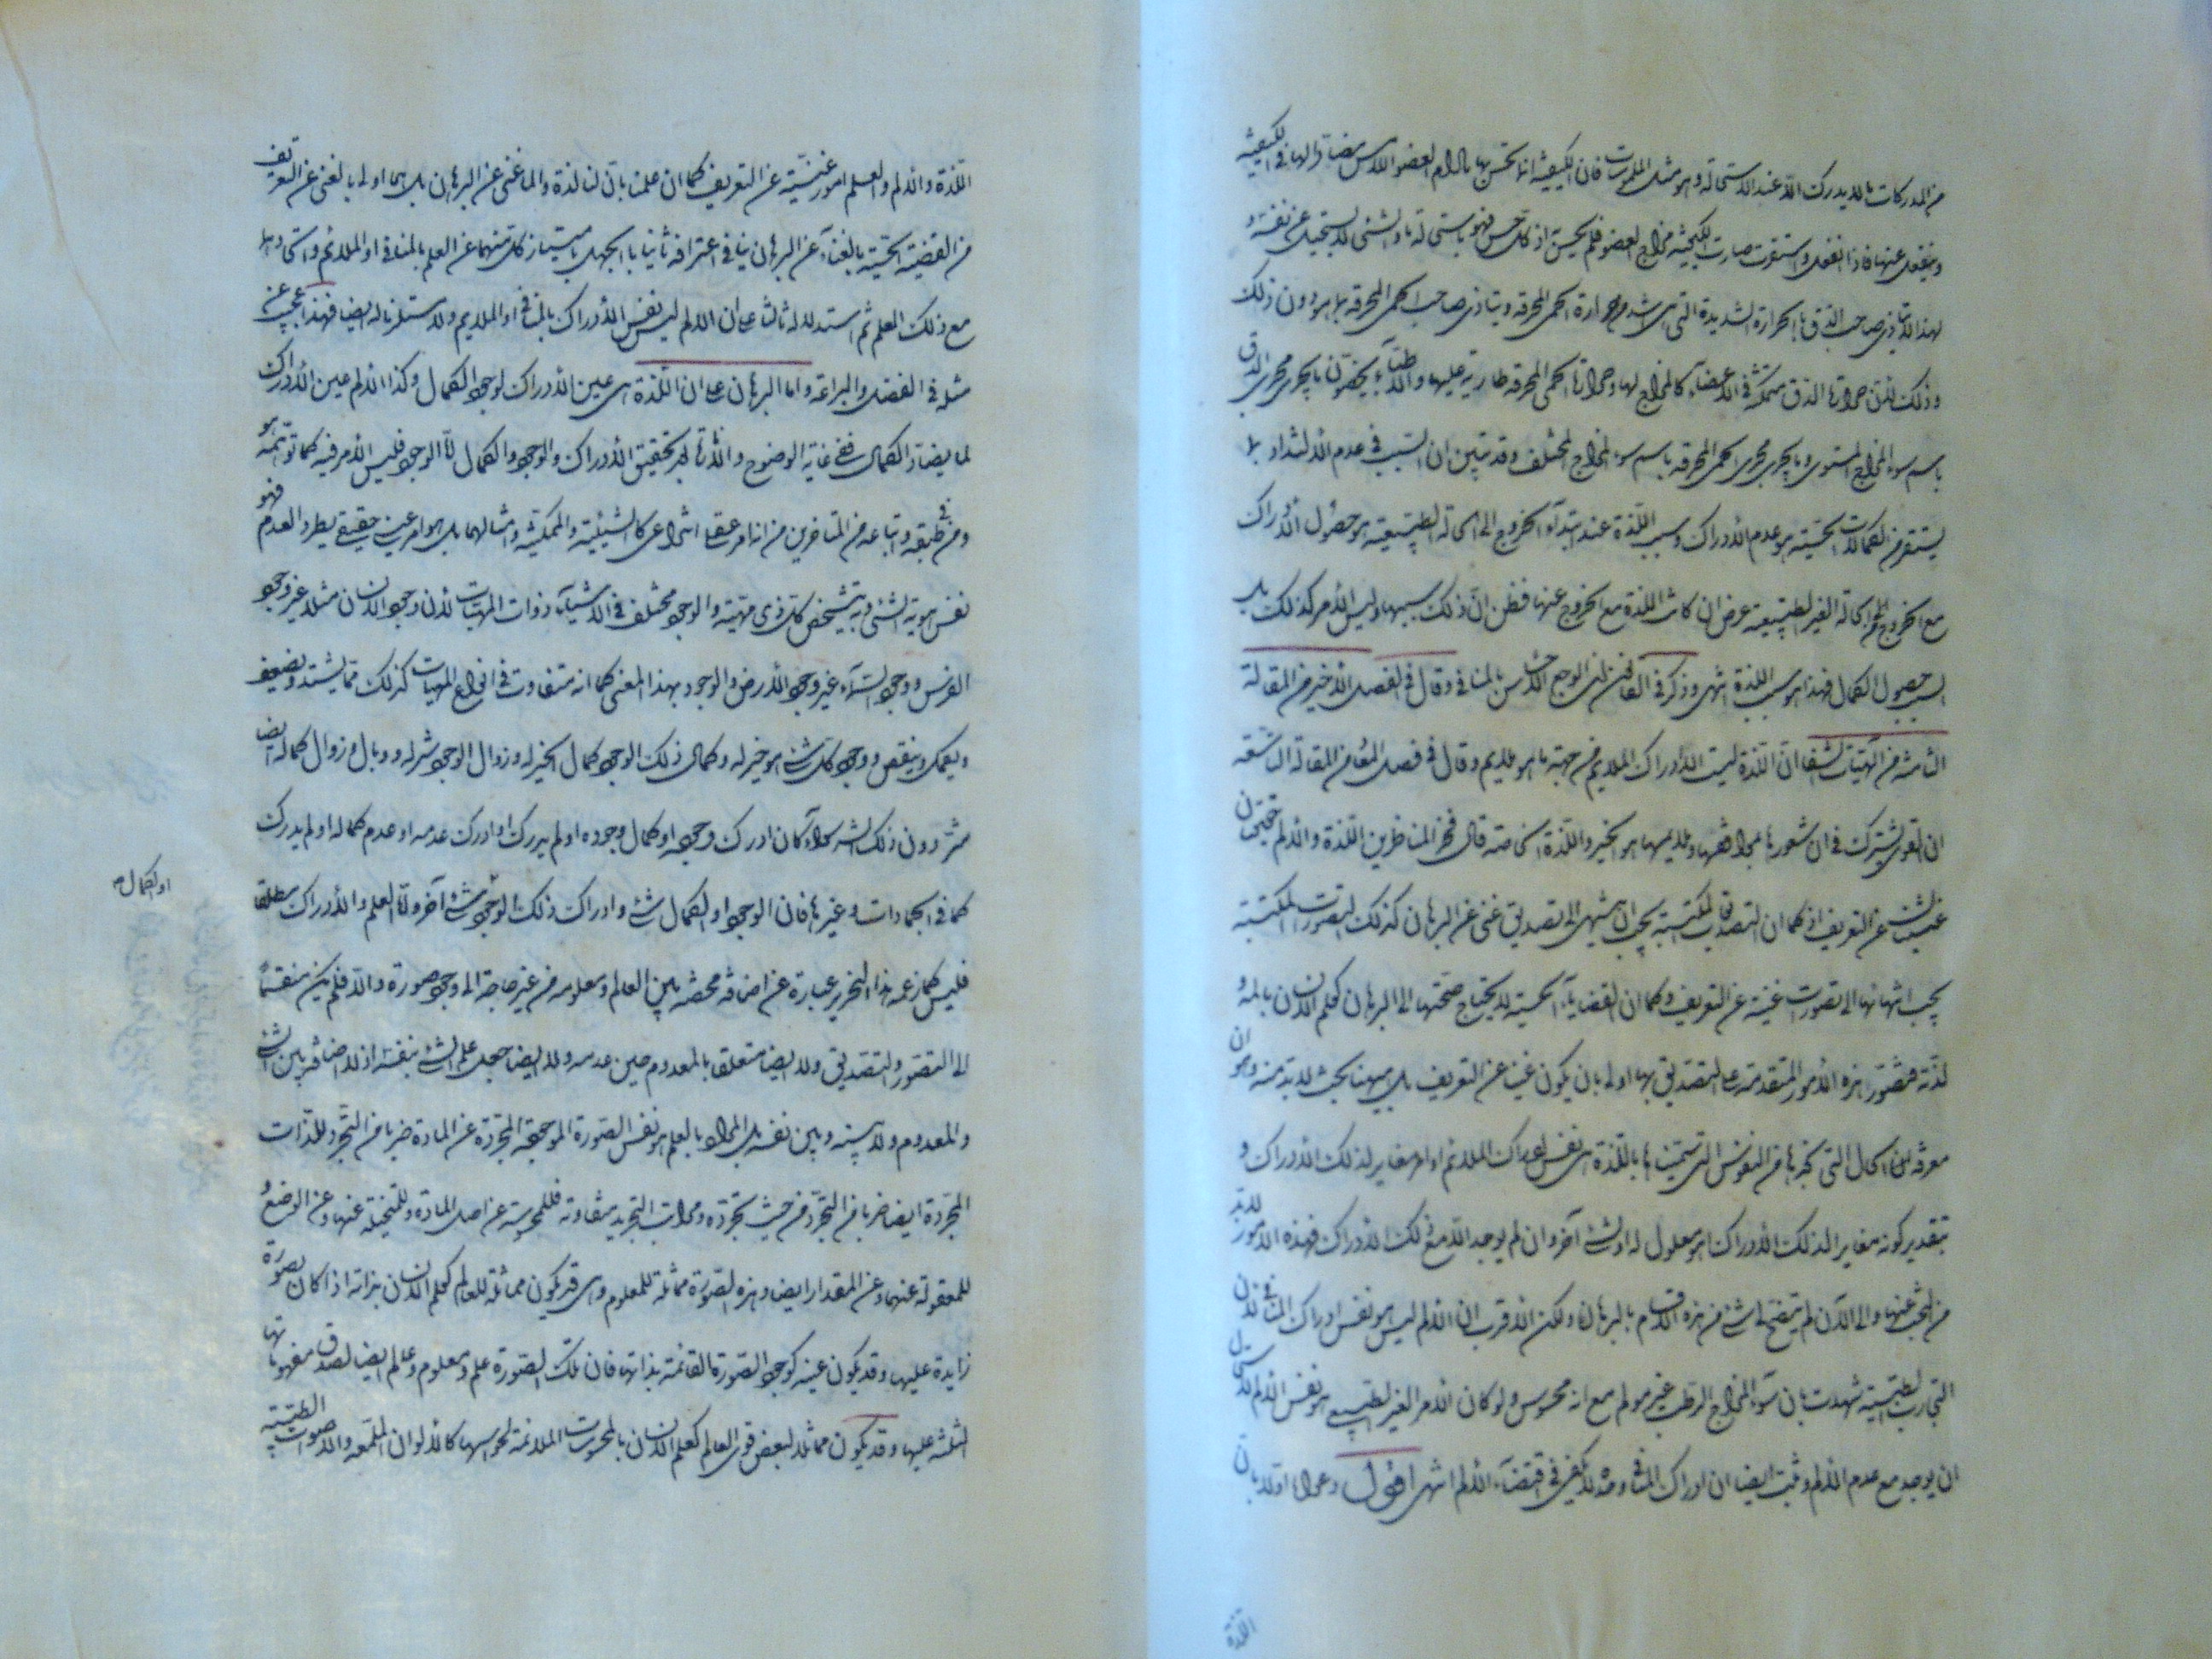 من المدركات ما لا يدرك الا عند الاستحالة وهو مثل الملموسات فان الكيفية انما تحس بها ما دام العضو اللامس مضادا لها في الكيفية
وينفعل عنها فاذا انفعل واستقرت صارت الكيفية مزاج العضو فلم يحس اذ كل حس فهو باستحالة ما والشئ لا يستحيل عن نفسه و
لهذا لا يتاذى صاحب الدق بالحرارة الشديدة التي هي اشد من حرارة الحمى المحرقة ويتاذى صاحب الحمى المحرقة بما هو دون ذلك
وذلك لان حرارة الدق متمكنة في الاعضاء كالمزاج لها وحرارة الحمى المحرقة طارية عليها والاطباء يخصون ما يجرى مجرى الدق
باسم سوء المزاج المستوى وما يجرى مجرى الحمى المحرقة باسم سوء المزاج المختلف وقد تبين ان السبب في عدم الالتذاذ بما
يستقر من الكمالات الحسية هو عدم الادراك وسبب اللذة عند ابتداء الخروج الى الحالة الطبيعية هو حصول الادراك
مع الخروج عن الحالة الغير الطبيعية عرض ان كانت اللذة مع الخروج عنها فظن ان ذلك سببها وليس الامر كذلك بل
السبب حصول الكمال فهذا هو سبب اللذة انتهى وذكر في القانون ان الوجع احساس بالمنافي وقال في الفصل الاخير من المقالة
الثامنة من الهيات الشفا ان اللذة ليست الا ادراك الملايم من جهة ما هو ملايم وقال في فصل المعاد من المقالة التاسعة
ان القوى تشترك في ان شعورها بموافقها وملايمها هو الخير واللذة الخاصة قال فخر المناظرين اللذة والالم حقيقتان
غنيتان عن التعريف اذ كما ان التصديقات المكتسبة يجب ان ينتهى الى تصديق غنى عن البرهان كذلك التصورات المكتسبة
يجب انتهائها الى تصورات غنية عن التعريف وكما ان القضايا الحسية لا يحتاج صحتها الى البرهان كعلم الانسان بالمه و
لذته فتصور هذه الامور المتقدمة على التصديق بها اولى بان يكون غنيا عن التعريف بل ههنا بحث لا بد منه وهو ان
معرفة ان الحال التي نجدها من النفوس التي سميناها باللذة هى نفس ادراك الملائم او امر مغاير لذلك الادراك و
بتقدير كونه مغايرا لذلك الادراك اهو معلول له او لشئ آخر وان لم يوجد الا مع ذلك الادراك فهذه الامور لا بد
من البحث عنها والى الآن لم يتضح لى شئ من هذه الاقسام بالبرهان ولكن الاقرب ان الالم ليس هو نفس ادراك المنافي لان
التجارب الطبية شهدت بان سوء المزاج الرطب غير مولم مع انه محسوس ولو كان الامر الغير الطبيعي هو نفس الالم لاستحال
ان يوجد مع عدم الالم وثبت ايضا ان ادراك المنافي وحده لا يكفى في اقتضاء الالم انتهى اقول دعواه اولا بان
اللذة
اللذة والالم والعلم امور غنية عن التعريف كما ان علمنا بان لنا لذة والما غنى عن البرهان بل هى اولى بالغنى عن التعريف
من القضية الحسية بالغناء عن البرهان ينافى اعترافه ثانيا بالجهل بامتياز كل منهما عن العلم بالمنافى او الملائم واتحادهما
مع ذلك العلم ثم استدلاله ثالثا على ان الالم ليس نفس الادراك بالمنافى او الملايم ولا مستلزما له ايضا فهذا عجيب عن
مثله في الفضل والبراعة واما البرهان على ان اللذة هى عين الادراك لوجود الكمال وكذا الالم عين الادراك
لما يضاد الكمال ففى غاية الوضوح والاثارة بعد تحقيق الادراك والوجود والكمال اما الوجود فليس الامر فيه كما توهمه هو
ومن في طبقته واتباعه من المتاخرين من انه امر عقلى انتزاعى كالشيئية والممكنية وامثالهما بل هو امر عينى حقيقى يطرد العدم فهو
نفس هوية الشئ وبه يتشخص كل ذى مهية والوجود مختلف في الاشياء ذوات المهيات لان وجود الانسان مثلا غير وجود
الفرس ووجود السماء غير وجود الارض والوجود بهذا المعنى كما انه متفاوت في انواع المهيات كذلك مما يشتد ويضعف
ويكمل وينقص ووجود كل شئ هو خير له وكمال ذلك الوجود كمال الخير له وزوال الوجود شر له ووبال وزوال كماله ايضا
شر دون ذلك الشر سواء كان ادرك وجوده او كمال وجوده او لم يدرك او ادرك عدمه او عدم كماله او لم يدرك
كما في الجمادات وغيرها فان الوجود او الكمال شئ وادراك ذلك الوجود شئ آخر واما العلم والادراك مطلقا
او الكمال صح
فليس كما زعمه هذا النحرير عبارة عن اضافة محضة بين العالم ومعلومه من غير حاجة الى وجود صورة والا فلم يكن منقسما
الى التصور والتصديق ولا ايضا متعلقا بالمعدوم حين عدمه ولا ايضا حصل علم الشئ بنفسه اذ لا اضافة بين الشئ
والمعدوم ولا بينه وبين نفسه بل المراد بالعلم هو نفس الصورة الموجودة المجردة عن المادة ضربا من التجرد للذات
المجردة ايضا ضربا من التجرد من حيث تجرده ومراتب التجريد متفاوتة فللمحسوسة عن اصل المادة وللمتخيلة عنها وعن الوضع و
للمعقولة عنهما وعن المقدار ايضا وهذه الصورة مماثلة للمعلوم وهى قد يكون مماثلة للعالم كعلم الانسان بذاته اذا كان بصورة
زايدة عليها وقد يكون عينه كوجود الصورة القائمة بذاتها فان تلك الصورة علم ومعلوم وعالم ايضا لصدق مفهوماتها
الثلثة عليها وقد يكون مماثلا لبعض قوى العالم كعلم الانسان بالمحسوسات الملائمة لحواسها كالالوان الملمعة والاصوات الطيبة